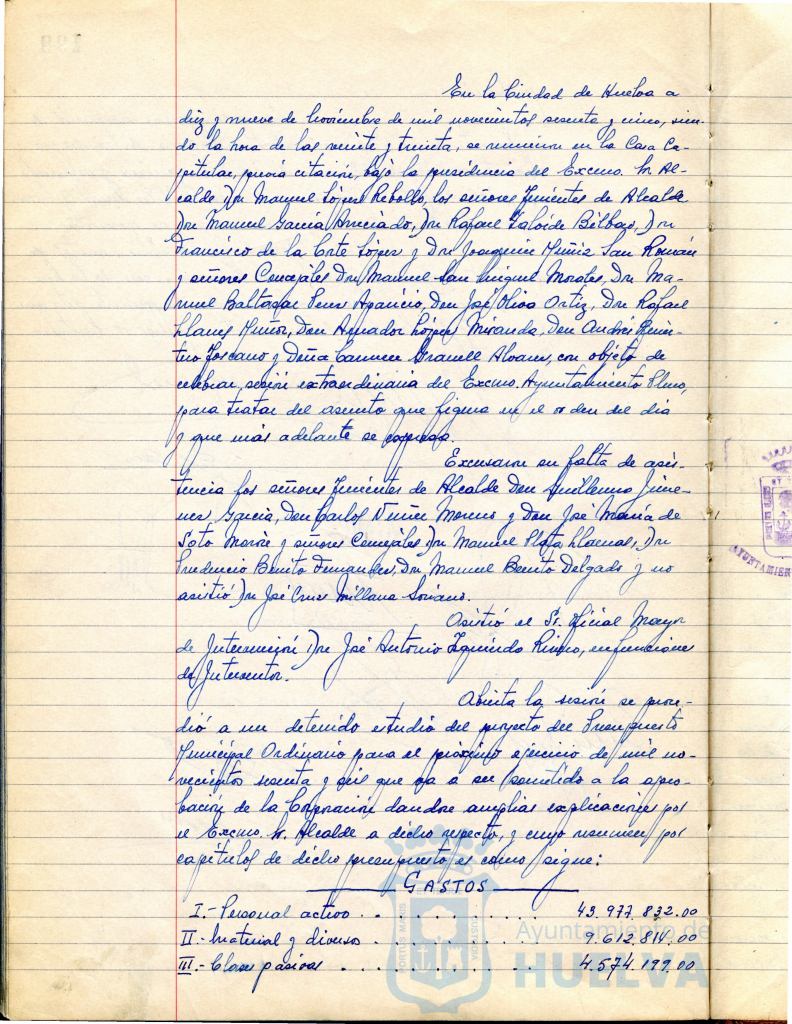 En la Ciudad de Huelva a
diez y nueve de Noviembre de mil novecientos sesenta y cinco, sien-
do la hora de las veinte y treinta, se reunieron en la Casa Ca-
pitular, previa citación, bajo la presidencia del Excmo. Sr. Al-
calde Don Manuel López Rebollo, los señores Tenientes de Alcalde
Don Manuel García Don Rafael Bilbao, Don
Francisco de la Corte López y Don Joaquín Muñiz San Román
y señores Concejales Don Manuel San Miguel Morales, Don Ma-
nuel Baltasar Perez Aparicio, Don José Oliva Ortiz, Don Rafael
Llanes Muñoz, Don Amador López Miranda, Don Andrés
Toscano y Doña Carmen Granell Alvarez, con objeto de
celebrar, sesión extraordinaria del Excmo. Ayuntamiento Pleno,
para tratar del asunto que figura en el orden del dia
y que más adelante se expresa.
Excusaron su falta de asis-
tencia los señores Tenientes de Alcalde Don Guillermo Jime-
nez Garcia, Don Carlos Nuñez Moreno y Don José Maria de
Soto Morón y señores Concejales Don Manuel Plata Llacuas, Don
Prudencio Benito Fernandez, Don Manuel Benito Delgado y no
asistió Don José Cruz Millana Soriano.
Asistió el Sr. Oficial Mayor
de Intervención Don José Antonio Izquierdo Rivero, en funciones
de Interventor.
Abierta la sesión se proce-
dió a un detenido estudio del proyecto del Presupuesto
Municipal Ordinario para el próximo ejercicio de mil no-
vecientos sesenta y seis que va a ser sometido a la apro-
bación de la Corporación dandose amplias explicaciones por
el Excmo. Sr. Alcalde a dicho respecto, y cuyo resumen por
capítulos de dicho presupuesto es como sigue:
GASTOS
I.- Personal activo . . . . . . . . . 43.977.832.00
II.- Material y diversos . . . . . . . . 9.612.814.00
III.- Clases pasivas . . . . . . . . . 4.574.199.00
Ayuntamiento de
HUELVA
PORTUS MARIS
CUSTODIA
AYUNTAMIEN